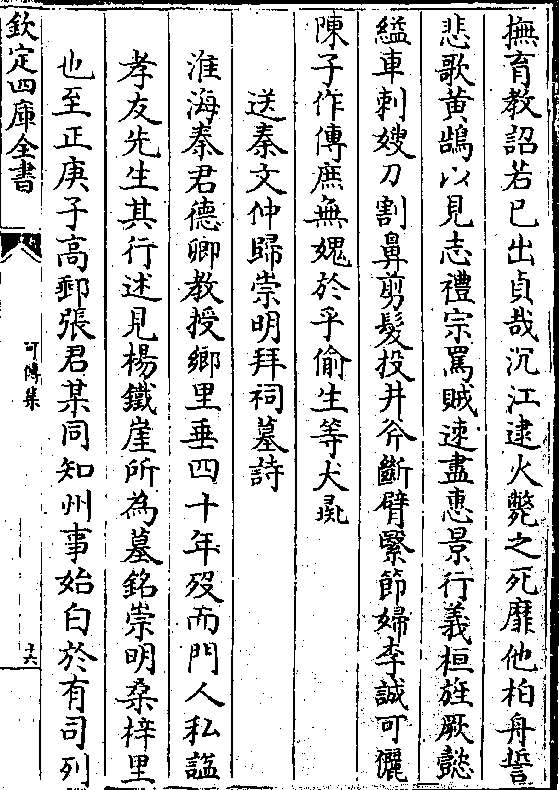 撫育教詔若已出貞哉沉江逮火斃之死靡他柏舟誓
悲歌黃鵠以見志禮宗罵賊速盡惠景行義桓旌厥懿
縊車刺嫂刀割鼻剪髮投井斧斷臂緊節婦李誠可儷
陳子作傳庶無媿於乎偷生等犬彘
送秦文仲歸崇明拜祠墓詩
淮海秦君德卿教授鄉里垂四十年歿而門人私諡
孝友先生其行述見楊鐵崖所為墓銘崇明桑梓里
也至正庚子高郵張君某同知州事始白於有司列
欽定四庫全書
可傳集
十六